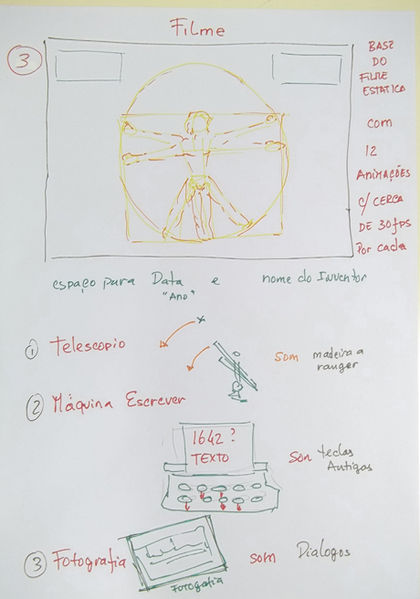 Filme
3
BASE
DO
FILME
ESTATICA
com
12
ANIMAÇÕES
c/ CERCA
DE 30fps
Por cada
espaço para Data e nome do Inventor
"Ano"
1 Telescopio
som madeira a
ranger
2 Máquina Escrever
1642?
TEXTO
som teclas
Antigas
3 Fotografia
som Dialogos
Fotografia